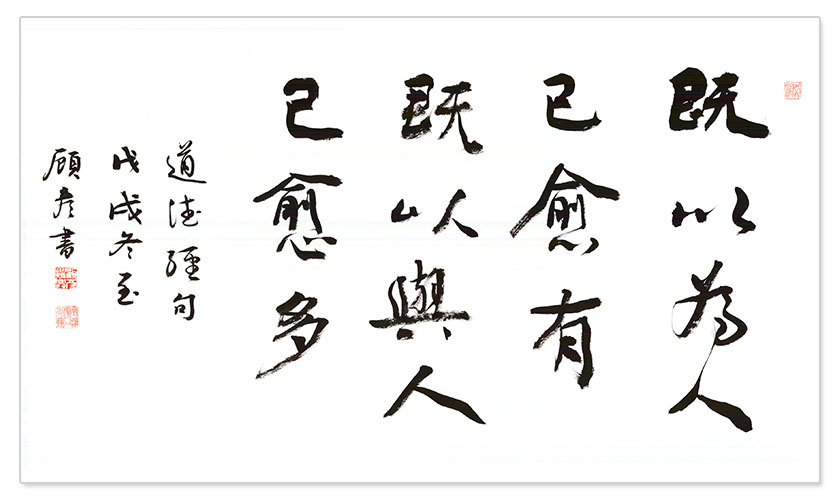 既以為人
已愈有
既以與人
已愈多
道德經句
戊戌冬至
顧彥書